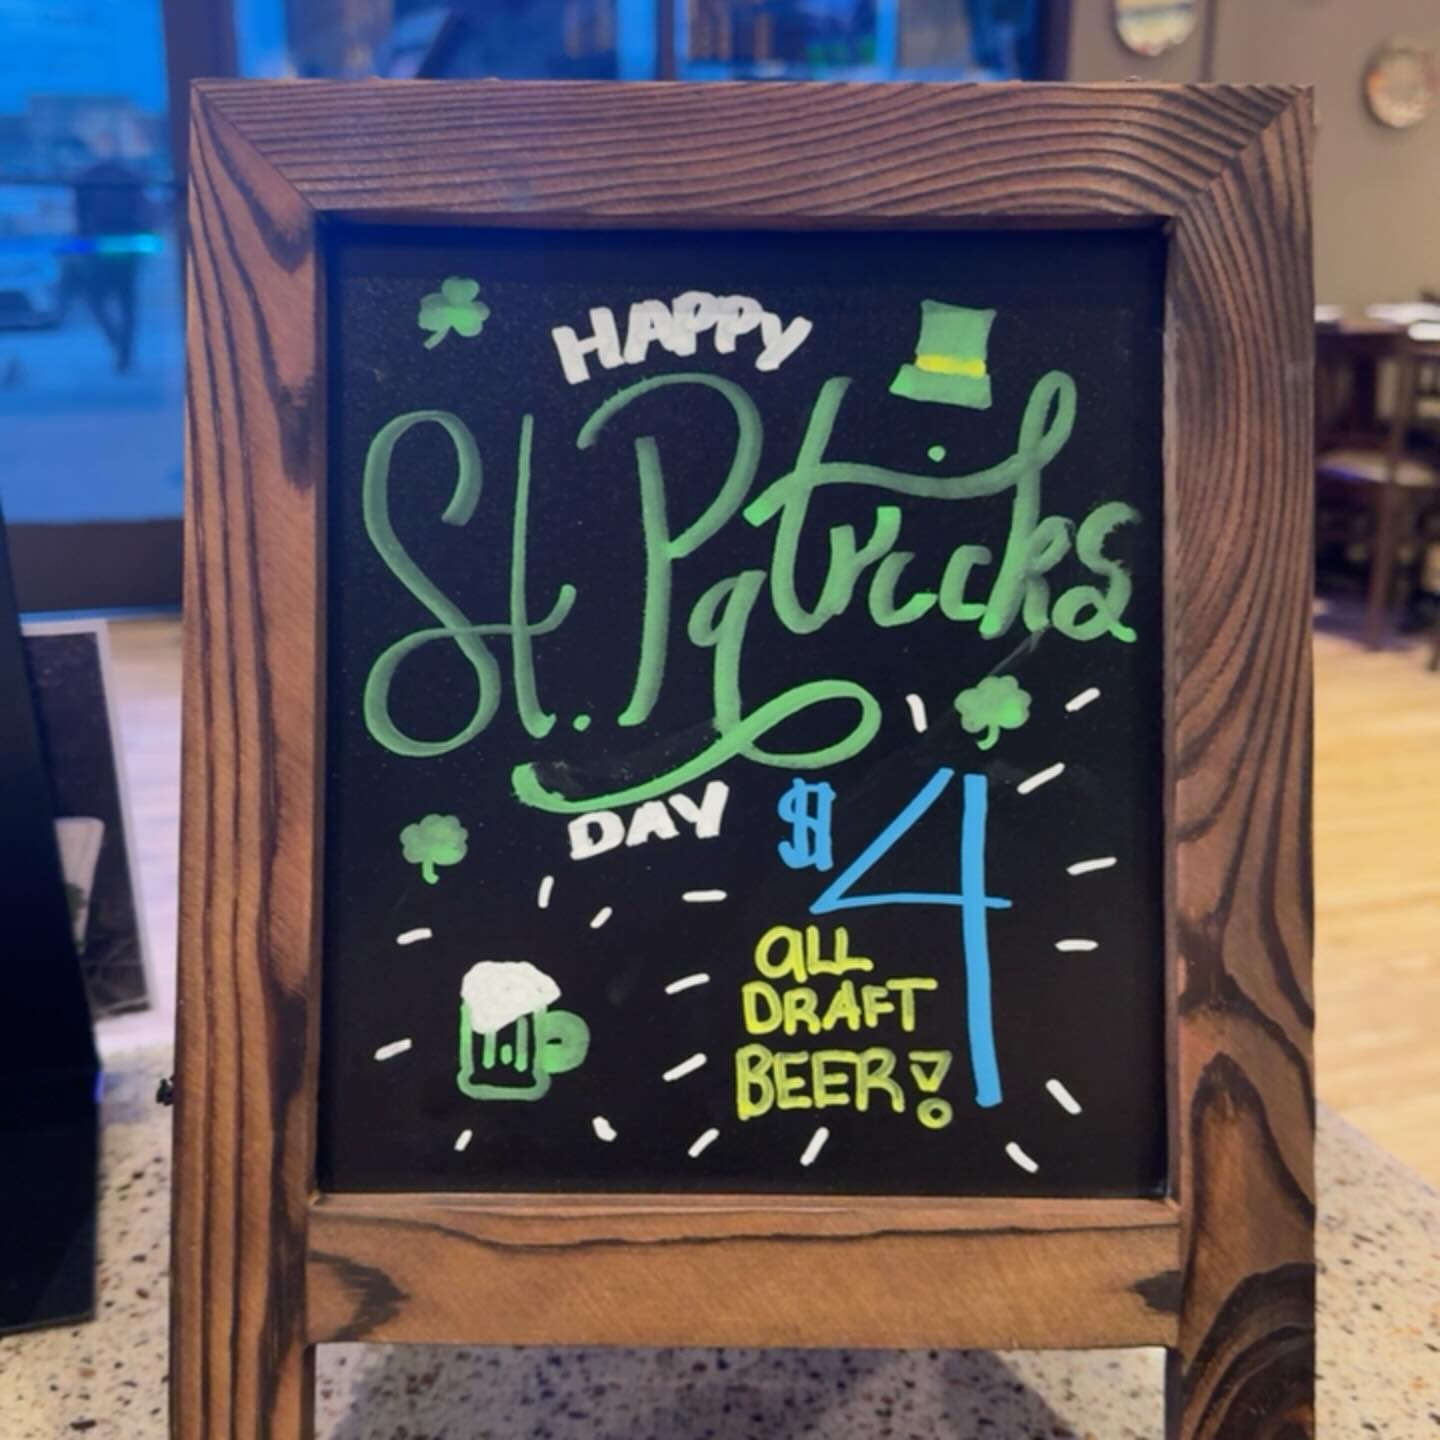 HAPPY
St. Patricks
DAY
$4
ALL
DRAFT
BEER!